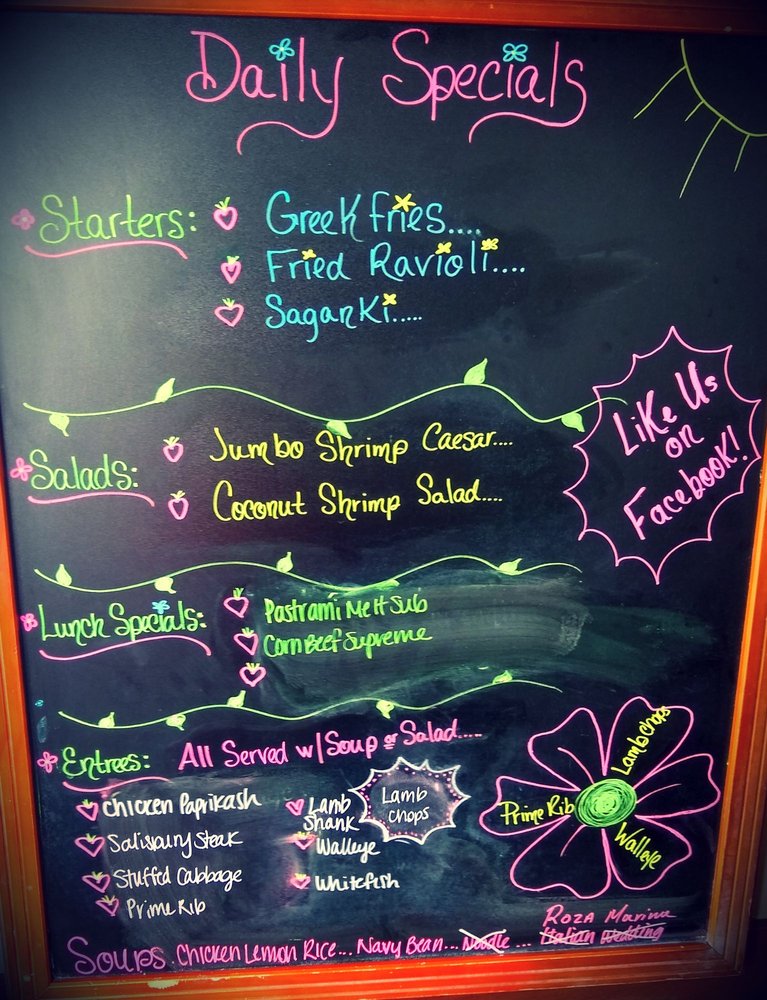 Daily Specials
Starters:
Greek Fries....
Fried Ravioli....
Saganki.....
Salads:
Jumbo Shrimp Caesar....
Coconut Shrimp Salad....
Like Us
on
Facebook!
Lunch Specials:
Pastrami Melt Sub
Corn Beef Supreme
Entrees: All Served w/ Soup or Salad.....
Chicken Paprikash
Salisbury Steak
Stuffed Cabbage
Prime Rib
Lamb
Shank
Walleye
Whitefish
Lamb
Chops
Lamb chops
Prime Rib
Walleye
Soups Chicken Lemon Rice... Navy Bean... Noodle ... Italian Wedding
Roza Marina